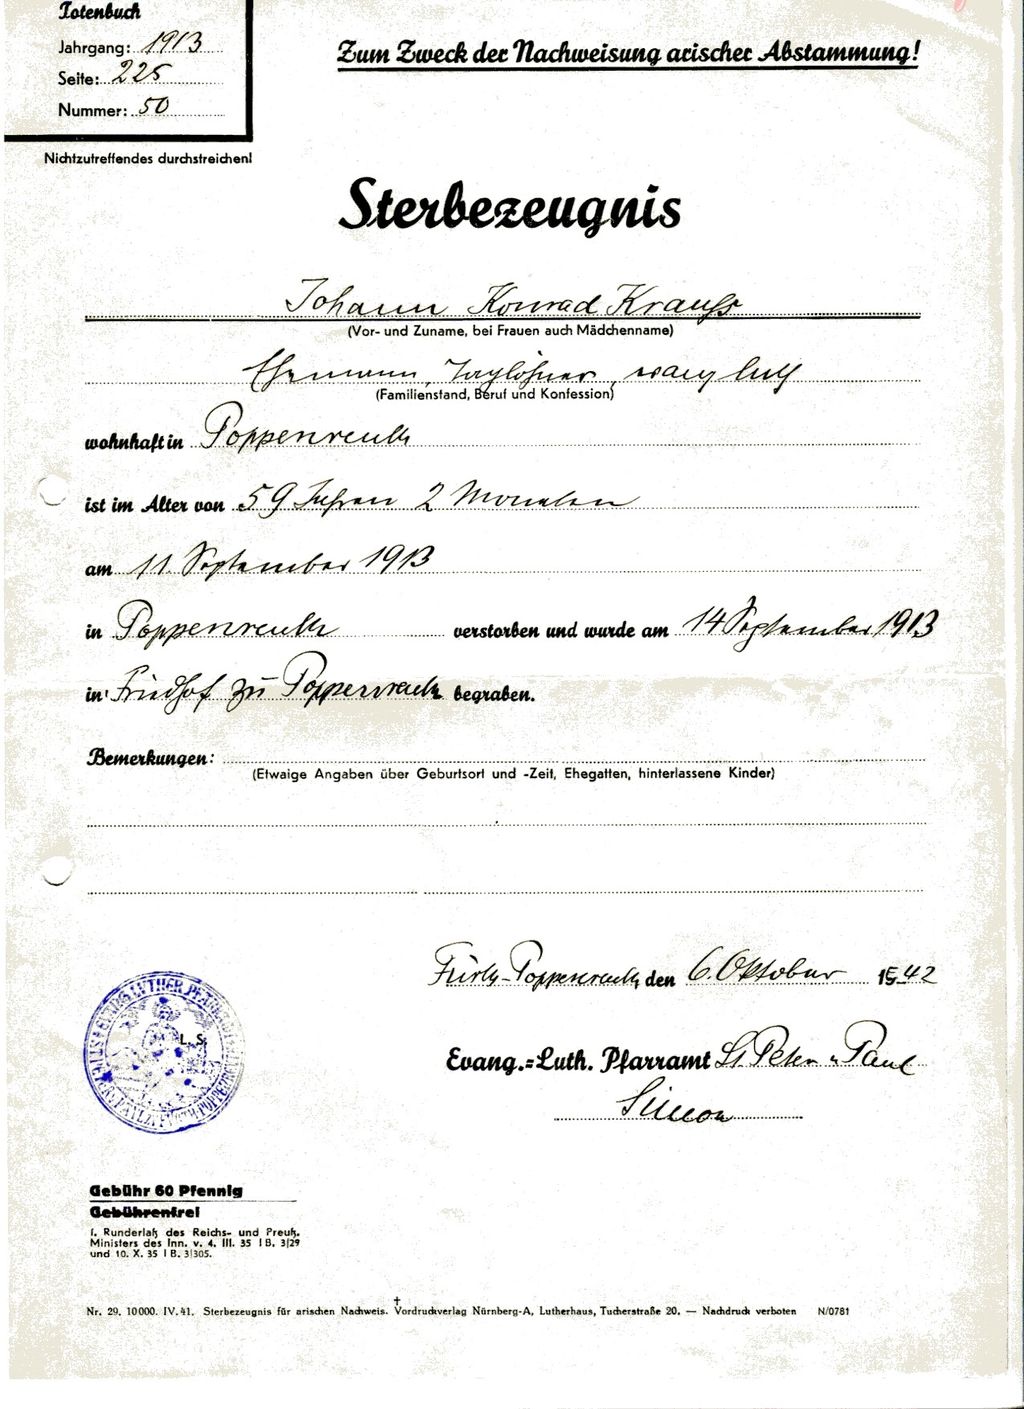 Totenbuch
Jahrgang: 1913
Seite: 225
Nummer: 50
Nichtzutreffendes durchstreichen!
Zum Zweck der Nachweisung arischer Abstammung!
Sterbezeugnis
Johann Konrad Krauß
(Vor- und Zuname, bei Frauen auch Mädchenname)
Ehemann, Taglöhner, evang luth
(Familienstand, Beruf und Konfession)
wohnhaft in Poppenreuth
ist im Alter von 59 Jahren 2 Monaten
am 11. September 1913
in Poppenreuth verstorben und wurde am 14 September 1913
in Friedhof zu Poppenreuth begraben.
Bemerkungen:
(Etwaige Angaben über Geburtsort und -Zeit, Ehegatten, hinterlassene Kinder)
Fürth-Poppenreuth den 6. Oktober 1942
L. S.
Evang.=Luth. Pfarramt St Peter u Paul
Simon
Gebühr 60 Pfennig
Gebührenfrei
1. Runderlaß des Reichs- und Preuß.
Ministers des Inn. v. 4. III. 35 I B. 3/29
und 10. X. 35 I B. 3/305.
Nr. 29. 10000. IV. 41. Sterbezeugnis für arischen Nachweis. Vordruckverlag Nürnberg-A, Lutherhaus, Tucherstraße 20. — Nachdruck verboten N/0781